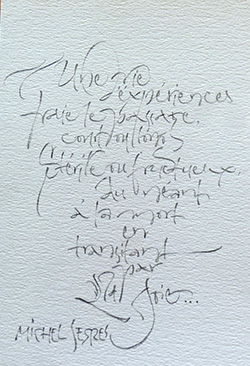 Une vie
d'expériences
fraie le passage.
convolutions
stérile ou fructueux,
du néant
à la mort
en
transitant
par
la joie...
MICHEL SERRES